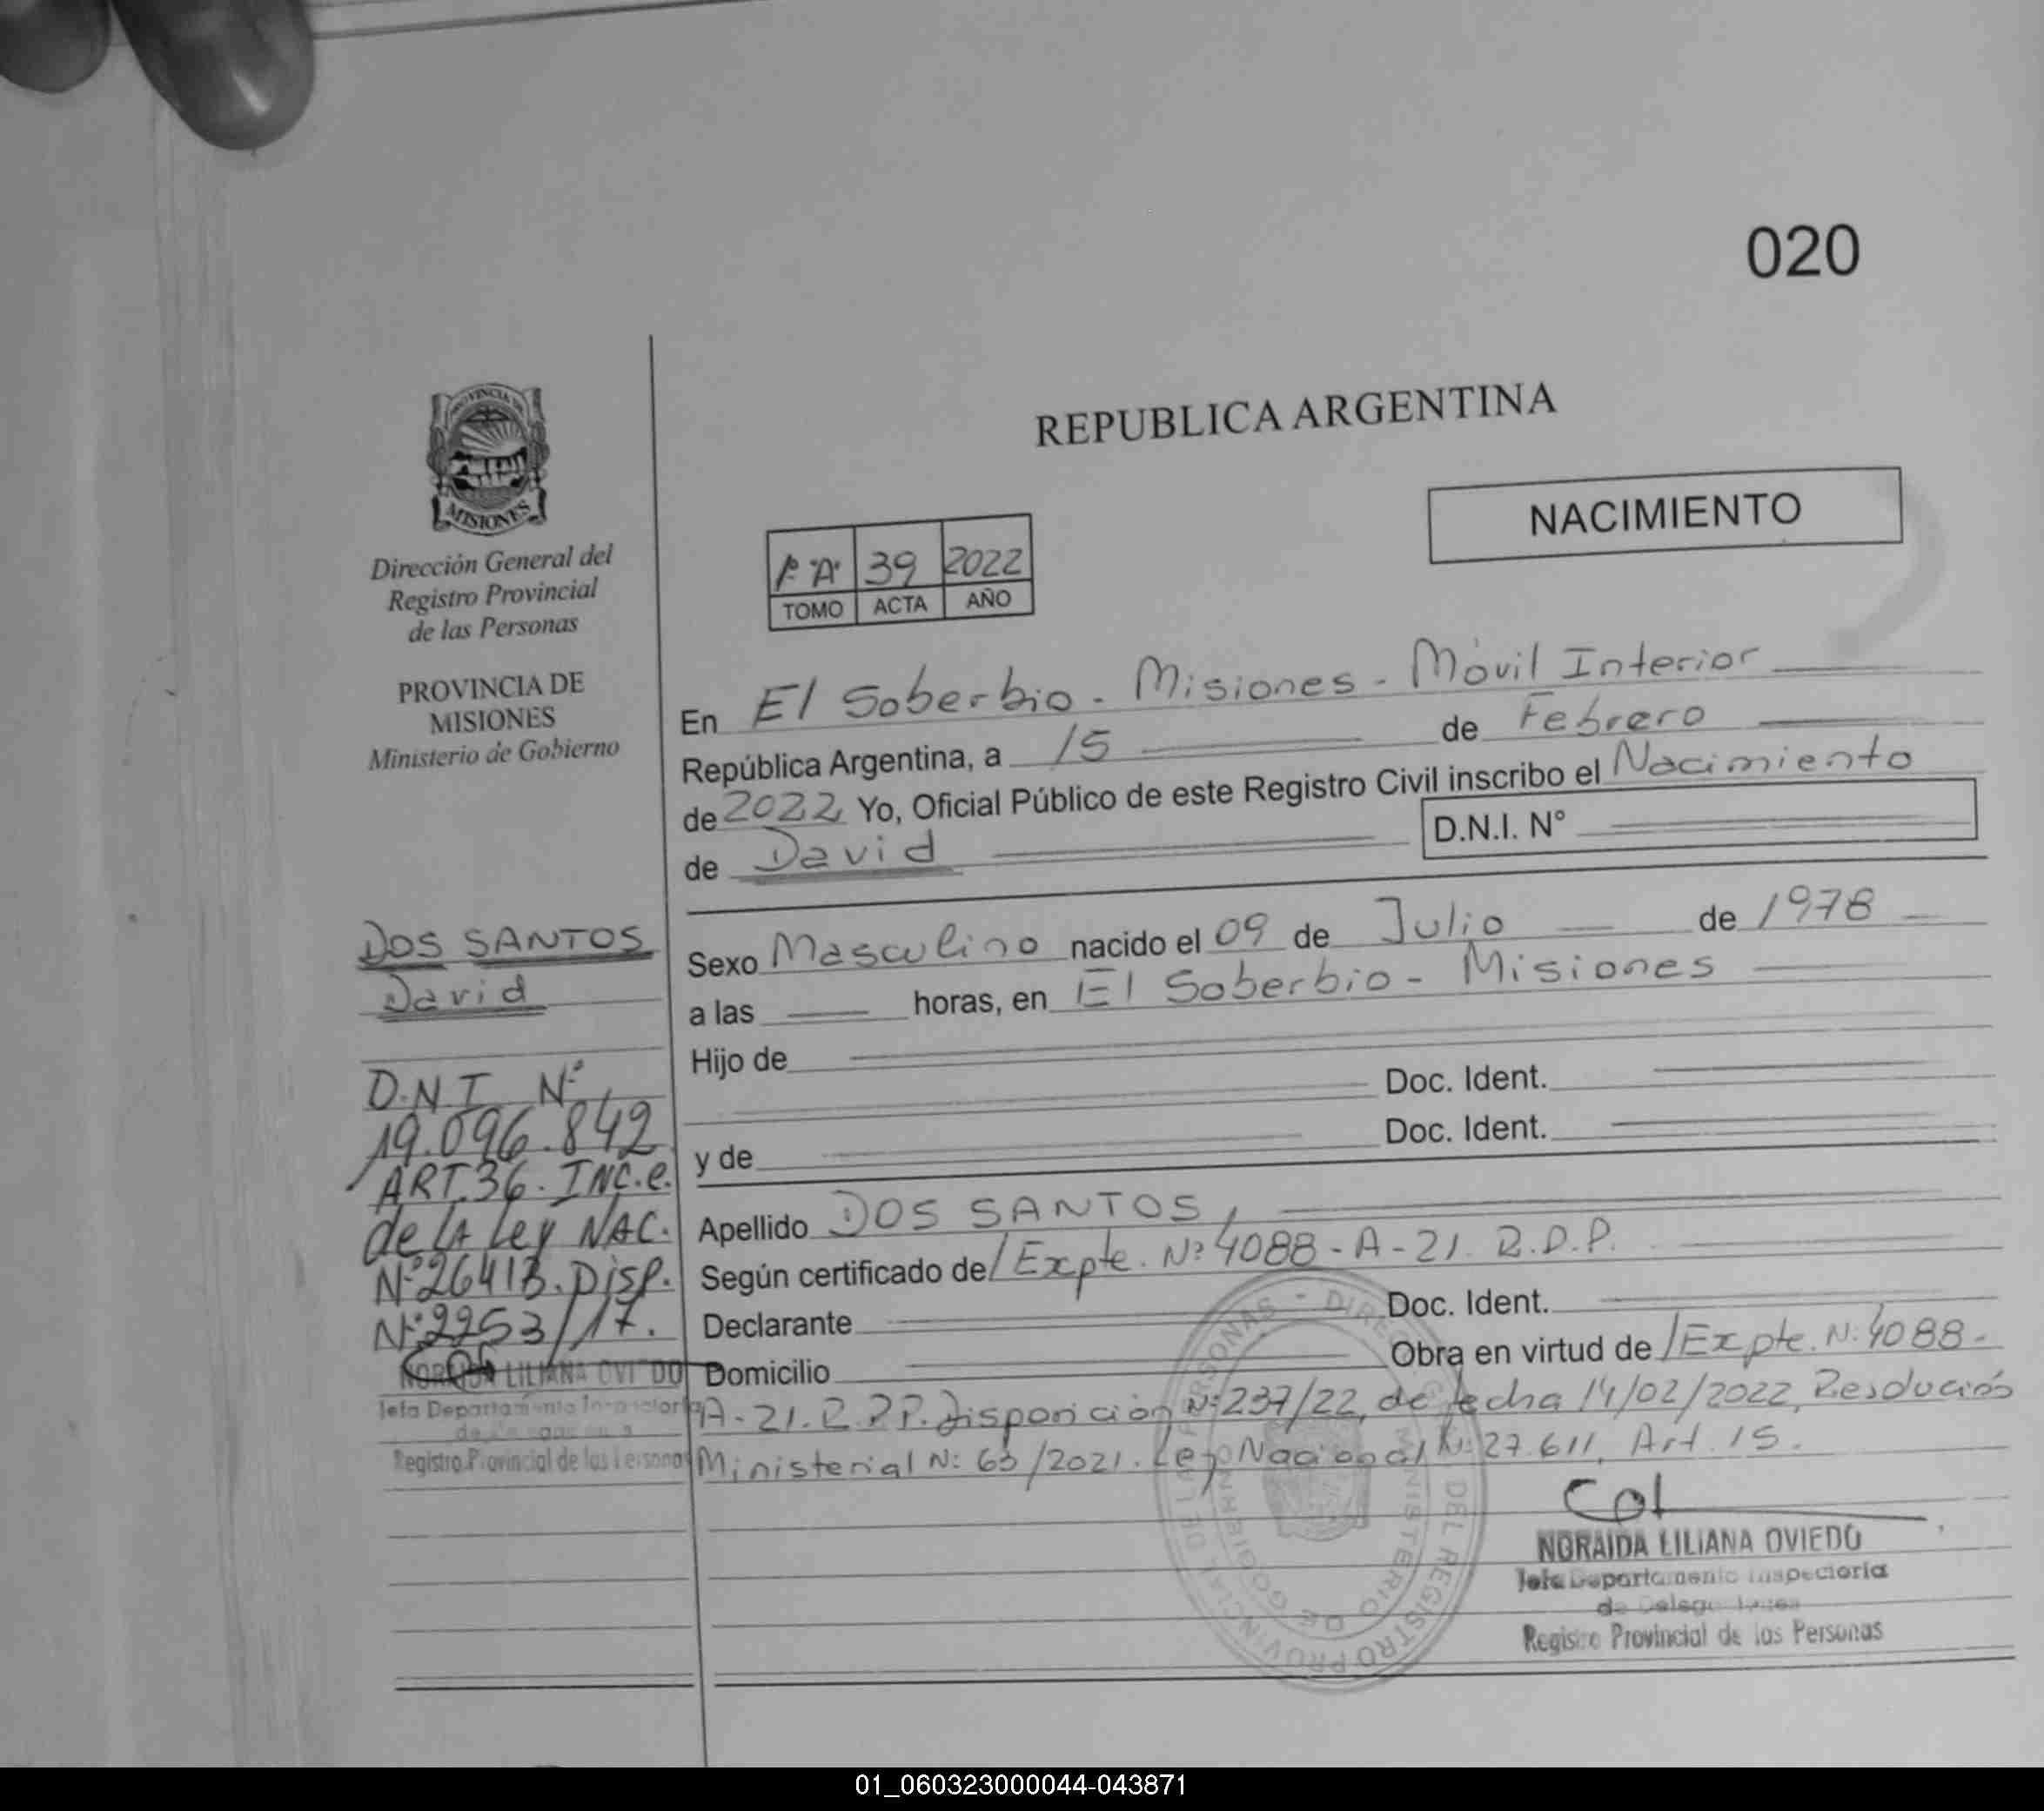 020
PROVINCIA DE
MISIONES
Dirección General del
Registro Provincial
de las Personas
PROVINCIA DE
MISIONES
Ministerio de Gobierno
DOS SANTOS
David
D.N.I. Nº
19.096.842
ART.36. INC.e.
de LA Ley NAC.
Nº26413.Disp.
Nº2253/17.
NORAIDA LILIANA OVIEDO
Jefa Departamento Inspectoria
Registro Provincial de las Personas
REPUBLICA ARGENTINA
NACIMIENTO
1º "A" 39 2022
TOMO ACTA AÑO
En El Soberbio - Misiones - Móvil Interior
República Argentina, a 15 de Febrero
de 2022 Yo, Oficial Público de este Registro Civil inscribo el Nacimiento
de David D.N.I. N°
Sexo Masculino nacido el 09 de Julio de 1978
a las horas, en El Soberbio - Misiones
Hijo de
Doc. Ident.
y de Doc. Ident.
Apellido DOS SANTOS,
Según certificado de/Expte. Nº 4088-A-21. R.D.P.
Declarante Doc. Ident.
Domicilio Obra en virtud de/Expte. Nº 4088-
A-21. R.D.P. Disposición Nº 237/22, de fecha 14/02/2022, Resolución
Ministerial Nº 63/2021. Ley Nacional Nº 27.611, Art. 15.
DIRECC. G. DEL REGISTRO PROVINCIAL DE LAS PERSONAS
MINISTERIO DE GOBIERNO
NORAIDA LILIANA OVIEDO
Jefa Departamento Inspectoria
de Delegaciones
Registro Provincial de las Personas
01_060323000044-043871